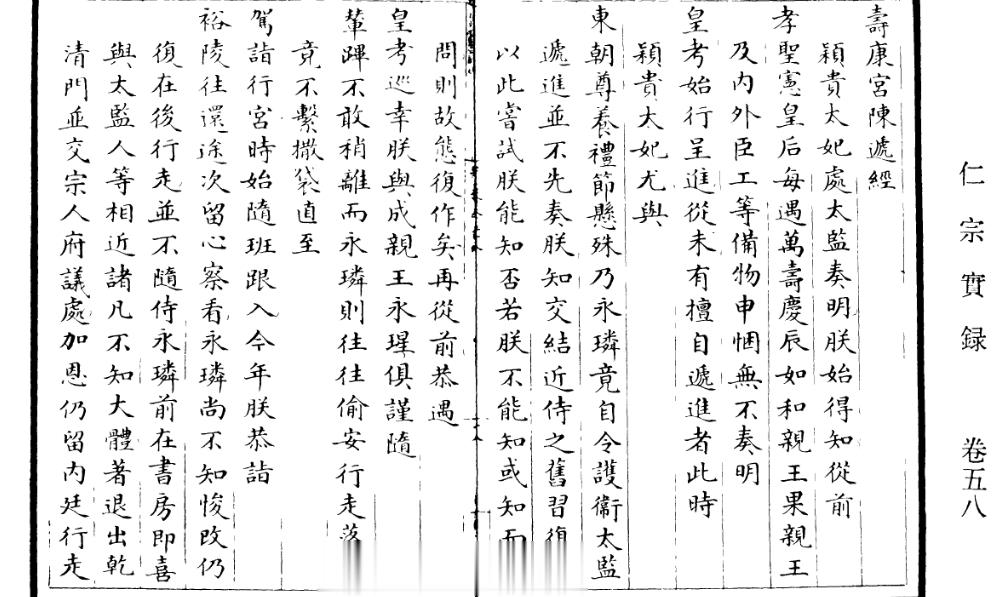 仁宗實録 卷五八
壽康宮陳遞經
穎貴太妃處太監奏明朕始得知從前
孝聖憲皇后每遇萬壽慶辰如和親王果親王
及內外臣工等備物申悃無不奏明
皇考始行呈進從未有擅自遞進者此時
穎貴太妃尤與
東朝尊養禮節懸殊乃永璘竟自令護衛太監
遞進並不先奏朕知交結近侍之舊習復
以此嘗試朕能知否若朕不能知或知而
問則故態復作矣再從前恭遇
皇考巡幸朕與成親王永瑆俱謹隨
輦蹕不敢稍離而永璘則往往偷安行走落
竟不繫撒袋直至
駕詣行宮時始隨班跟入今年朕恭詣
裕陵往還途次留心察看永璘尚不知悛改仍
復在後行走並不隨侍永璘前在書房即喜
與太監人等相近諸凡不知大體著退出乾
清門並交宗人府議處加恩仍留內廷行走